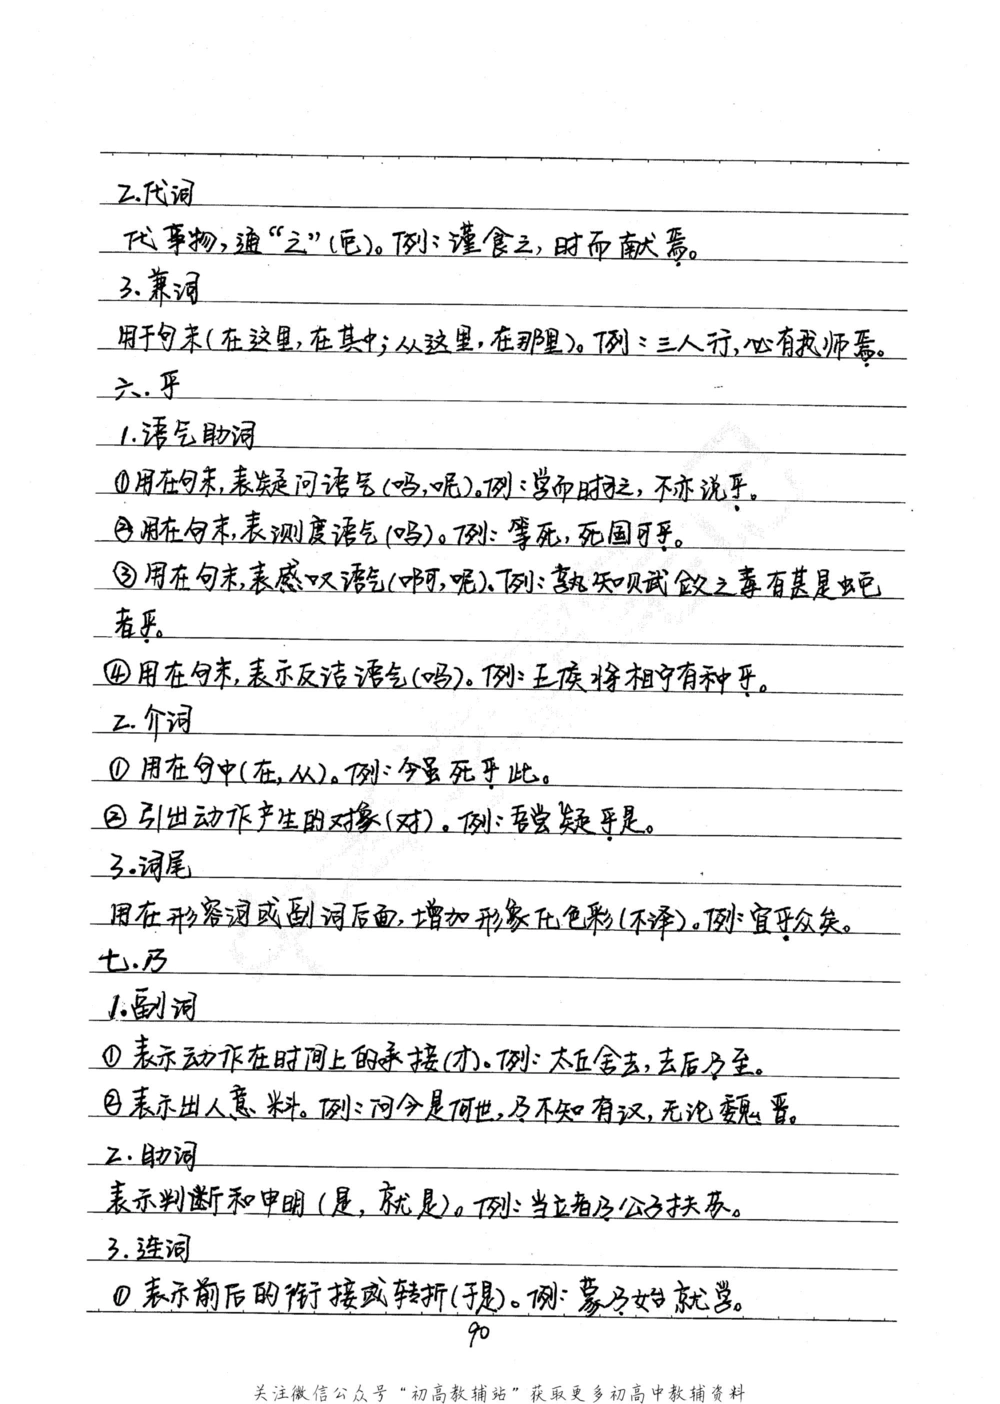 2.代词
代事物,通“之”(它)。例:谨食之,时而献焉。
3.兼词
用于句末(在这里,在其中;从这里,在那里)。例:三人行,必有我师焉。
六.乎
1.语气助词
①用在句末,表疑问语气(吗,呢)。例:学而时习之,不亦说乎。
②用在句末,表测度语气(吗)。例:等死,死国可乎。
③用在句末,表感叹语气(啊,呢)。例:孰知赋敛之毒有甚是蛇
者乎。
④用在句末,表示反诘语气(吗)。例:王侯将相宁有种乎。
2.介词
①用在句中(在,从)。例:今虽死乎此。
②引出动作产生的对象(对)。例:吾尝疑乎是。
3.词尾
用在形容词或副词后面,增加形象化色彩(不译)。例:宜乎众矣。
七.乃
1.副词
①表示动作在时间上的承接(才)。例:太丘舍去,去后乃至。
②表示出人意料。例:问今是何世,乃不知有汉,无论魏晋。
2.助词
表示判断和申明(是,就是)。例:当立者乃公子扶苏。
3.连词
①表示前后的衔接或转折(于是)。例:蒙乃始就学。
90
关注微信公众号“初高教辅站”获取更多初高中教辅资料